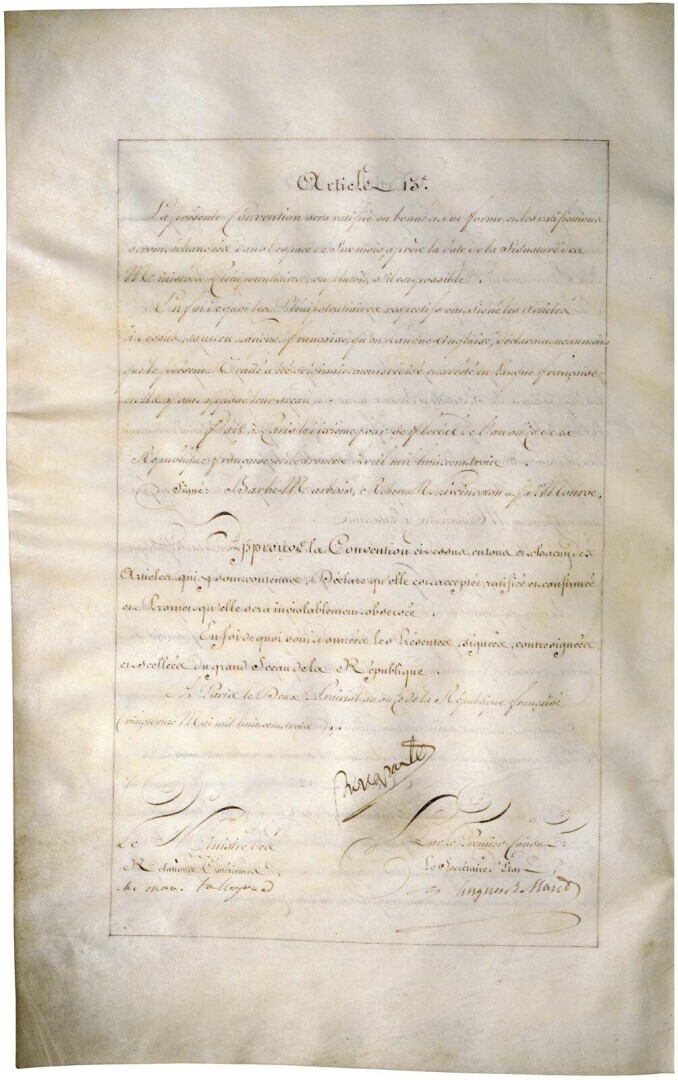 Article 13e.
La présente Convention sera ratifiée en bonne et due forme et les ratifications
seront échangées dans l'espace de Six mois après la date de la Signature des
Ministres Plénipotentiaires, ou plutôt, s'il est possible.
En foi de quoi les Plénipotentiaires respectifs ont signé les Articles
ci dessus, tant en Langue française, qu'en Langue Anglaise, déclarant néanmoins
que le présent Traité a été originairement rédigé et arrêté en Langue française,
et ils y ont apposé leur sceau.
Fait à Paris le dixième jour de floréal de l'an onze de la
République française et le trente Avril mil huit cent trois.
Signé: Barbé Marbois, Robert R. Livingston et Jas. Monroe.
Approuve la Convention ci dessus en tous et chacun des
Articles qui y sont contenus; Déclare qu'elle est acceptée ratifiée et confirmée
et Promet qu'elle sera inviolablement observée.
En foi de quoi sont données les Présentes, signées, contresignées
et scellées du grand Sceau de la République.
À Paris le Deux Prairial an onze de la République française
(vingt deux Mai mil huit cent trois).
Bonaparte
Le Ministre des
Relations Extérieures,
ch. mau. talleyrand
Par le Premier Consul:
Le Secrétaire d'Etat
hugues B. Maret